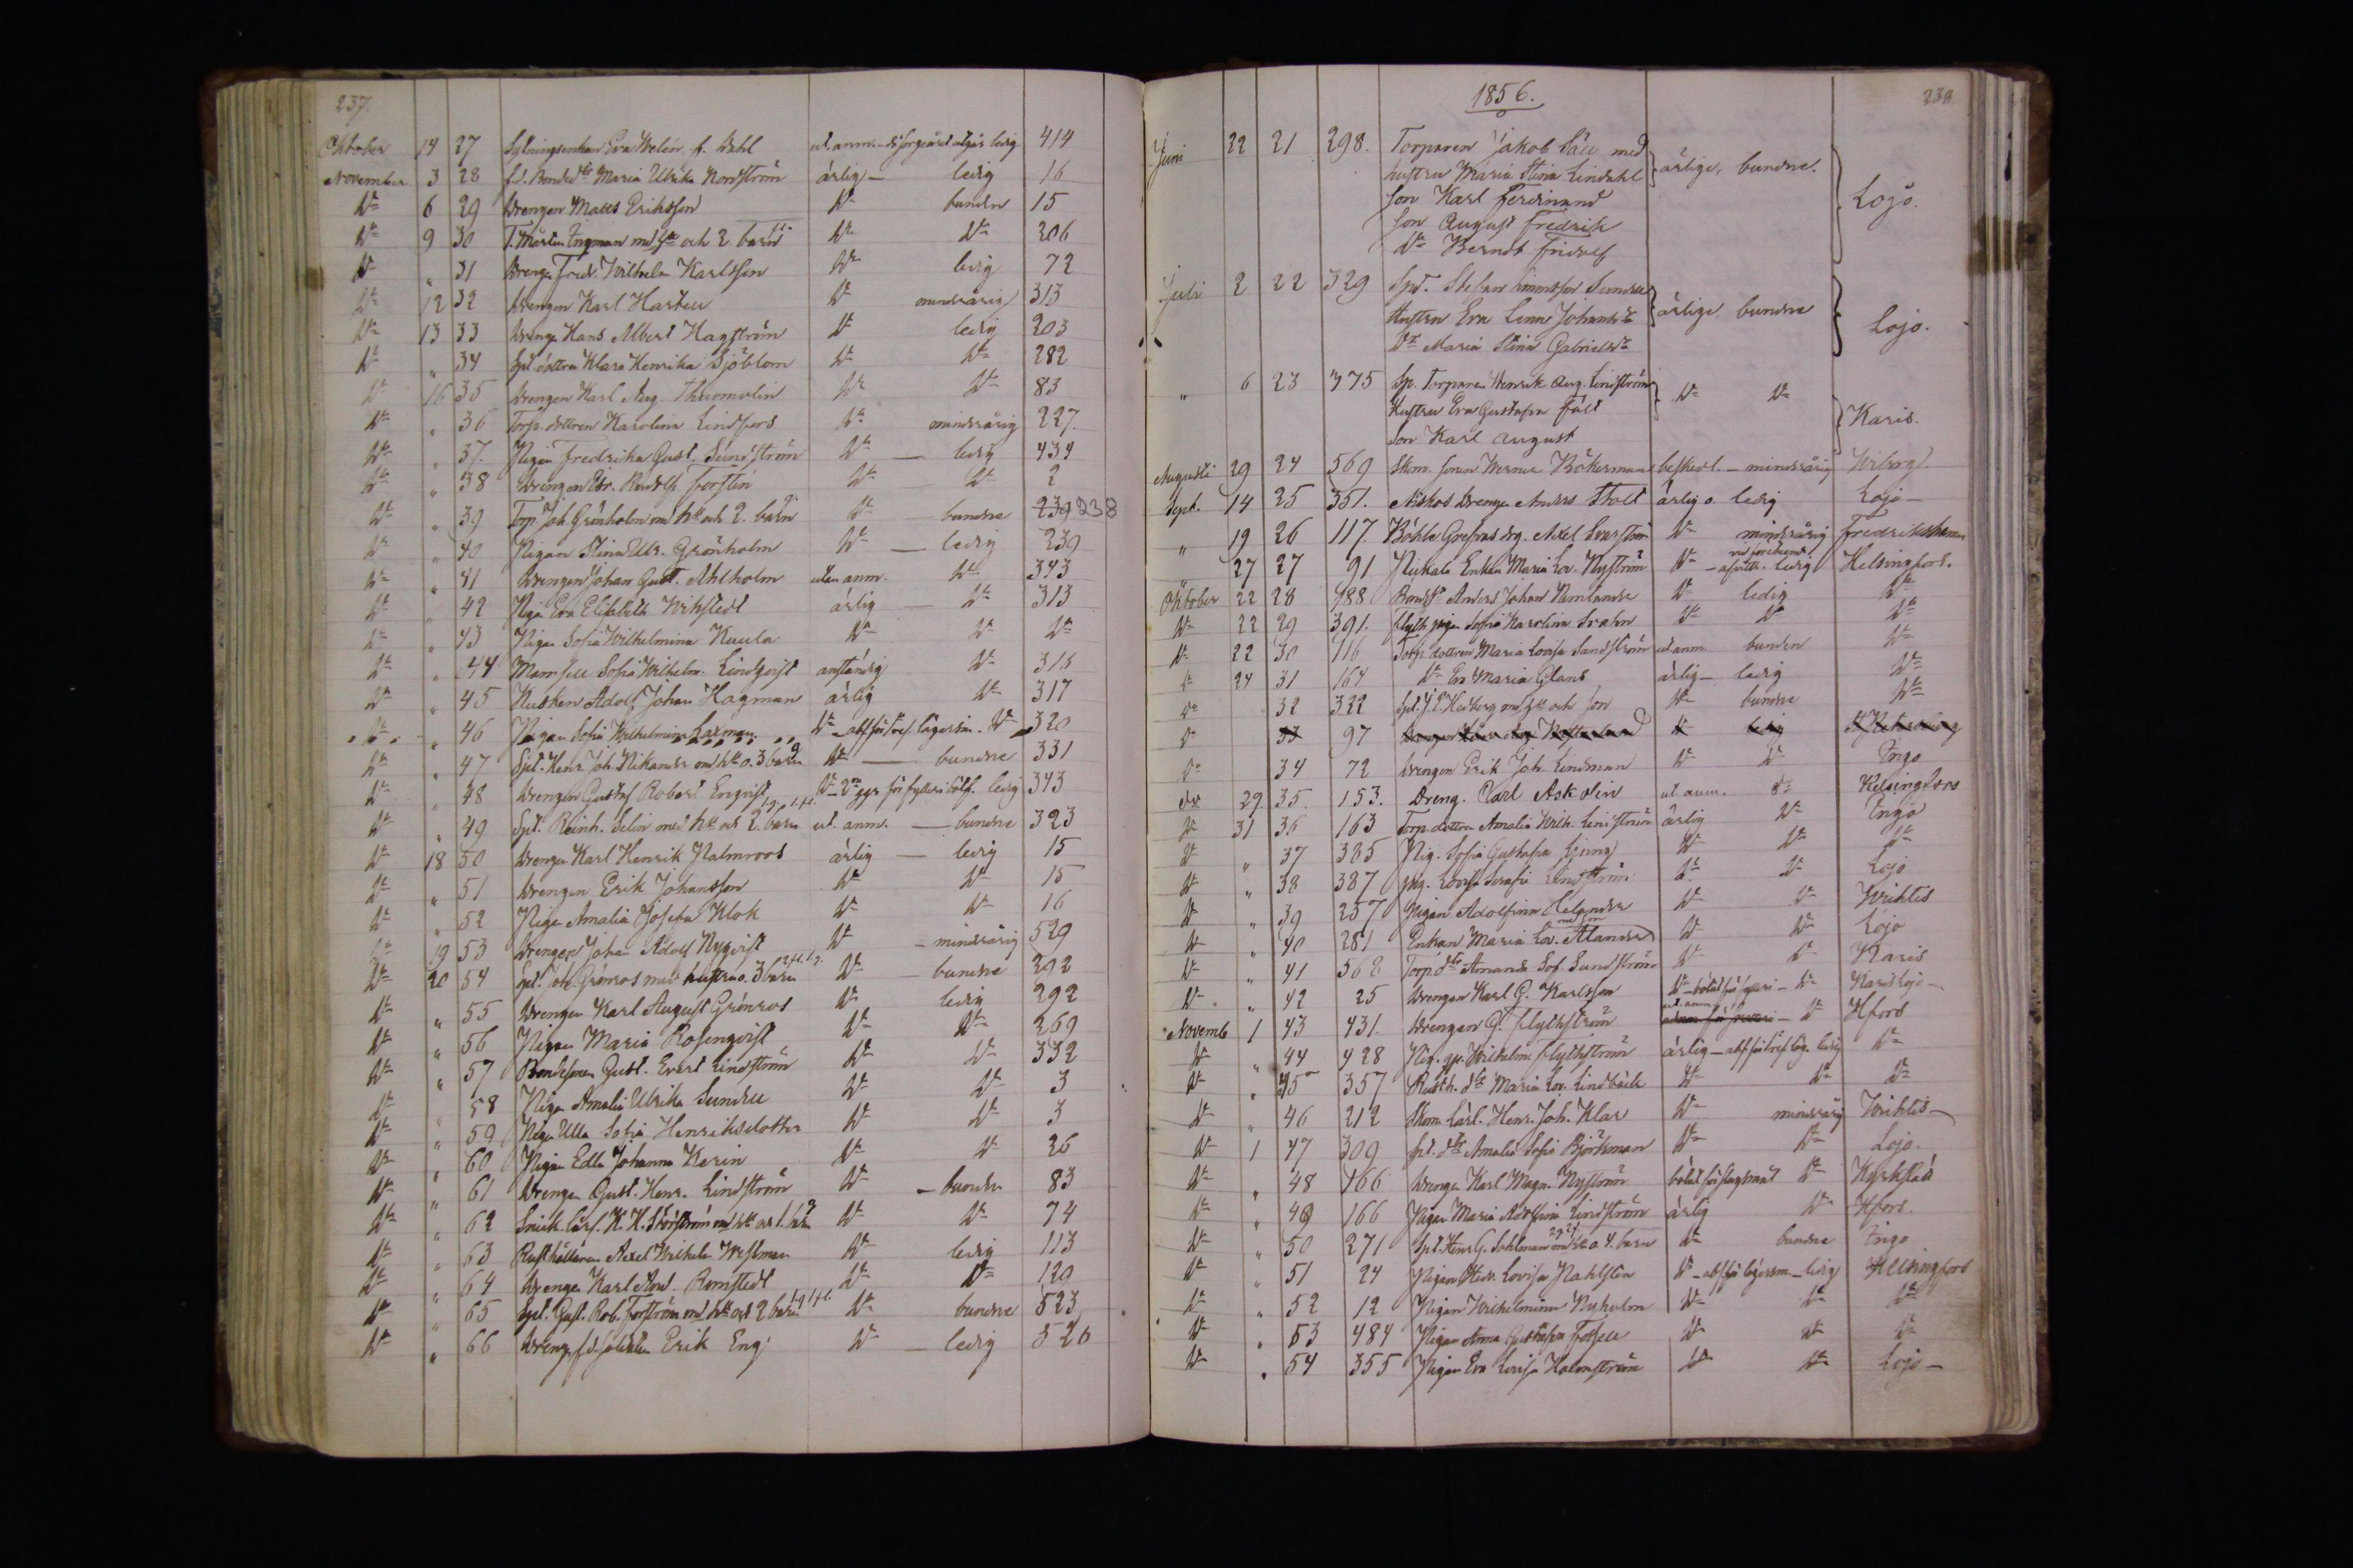 237.
Oktober 14 27 Sytningsenkan Eva Welin f. Dahl ut. anm. ledig 414
November 3 28 f.d. Bonded:tr Maria Ulrika Nordström ärlig – ledig 16
D:o 6 29 Drengen Matts Eriksson D:o bunden 15
D:o 9 30 T. Mårten Ingman md h:u och 2 barn D:o D:o 206
D:o " 31 Drengen Fredr. Wilhelm Karlsson D:o ledig 72
D:o 12 32 Drengen Karl Hartell D:o mindreårig 313
D:o 13 33 Drengen Hans Albert Hagström D:o ledig 203
D:o " 34 Spl. dottren Klara Henrika Sjöblom D:o D:o 282
D:o 16 35 Drengen Karl Aug. D:o D:o 83
D:o " 36 Torp. dottren Karolina Lindfors D:o mindreårig 227.
D:o " 37. Pigan Fredrika Gust. Sundström D:o — ledig 434
D:o " 38 Drengen Rudolf Forstén D:o D:o 2
D:o " 39 Torp. Joh. Grönholm md h:u och 2. barn D:o bundne 239 238
D:o " 40 Pigan Stina Ulr. Grönholm D:o — ledig 239
D:o " 41 Drengen Johan Gust. Ahlholm utan anm. D:o 343
D:o " 42 Pigan Eva Elisabeth Wikstedt ärlig — D:o 313
D:o " 43 Pigan Sofia Wilhelmina Kuula D:o D:o D:o
D:o " 44 Mamsell Sofia Wilhelm. Lindqvist anständig D:o 316
D:o " 45 Kusken Adolf Johan Hagman ärlig D:o 317
D:o " 46 Pigan Sofia Wilhelmina Laxman D:o – abs. för lägersm. D:o 320
D:o " 47 Spl. Henr. Joh. Nikander md h:u o. 3 barn D:o — bundne 331
D:o " 48 Drengen Gustaf Robert Enqvist D:o ledig 343
D:o " 49 Spl. Reinh. Selin med h:u och 2. barn ut. anm. — bundne 323
D:o 18 50 Drengen Karl Henrik Malmroos ärlig — ledig 15
D:o " 51 Drengen Erik Johansson D:o D:o 15
D:o " 52 Pigan Amalia Josefa Klok D:o D:o 16
D:o 19 53 Drengen Johan Adolf Nyqvist D:o – mindreårig 529
D:o 20 54 Spl. Joh. Grönroos med hustru o. 3 barn D:o bundne 292
D:o " 55 Drengen Karl August Grönroos D:o ledig 292
D:o " 56 Pigan Maria Rosenqvist D:o D:o 269
D:o " 57 Bondesonen Gust. Evert Lindström D:o D:o 332
D:o " 58 Pigan Amalia Ulrika Sundell D:o D:o 3
D:o " 59 Pigan Ulla Sofia Henriksdotter D:o D:o 3
D:o " 60 Pigan Edla Johanna Kerin D:o D:o 26
D:o " 61 Drengen Gust. Henr. Lindström D:o – bunden 83
D:o " 62 Snick. lärl. K. H. md h:u och 1. barn D:o D:o 74
D:o " 63 Rusthållaren Axel Wilhelm Westman D:o ledig 113
D:o " 64 Drengen Karl And. Rönstedt D:o D:o 129
D:o " 65 Spl. Gust. Rob. Forström md h:u och 2 barn D:o bundne 523
D:o " 66 Dreng. f.d. soldaten Erik Eng D:o — ledig 526
1856.
238.
Juni 22 21 298. Torparen Jakob Säll med
hustru Maria Stina Lindahl ärlige, bundne.
Son Karl Ferdinand Lojo.
Son August Fredrik
D:o Berndt Fridolf
Juli 2 22 329 Spl. Stefan Simonsson Sundell
Hustru Eva Lena Johansd:r ärlige bundne Lojo.
D:r Maria Stina Gabrielsd:r
" 6 23 375 Sp. Torparen Henrik Aug. Lindström D:o D:o
Hustru Eva Gustafva Fält Karis.
Son Karl August
Augusti 29 24 569 Skom. sonen Werner Böckerman beskedl. – mindreårig Wiborg.
Sept. 14 25 351. Niskos Drengen Anders Stolt ärlig o. ledig Lojo –
" 19 26 117. Böhle Grefvas drg. Axel D:o mindreårig Fredrikshamn
27 27 91. Pukala Enkan Maria Lov. Nyström D:o – ledig Helsingfors.
Oktober 22 28 188 Bonds:n Anders Johan D:o ledig D:o
D:o 22 29 391. pigan Sofia Karolina Svahn D:o D:o D:o
D:o 22 30 116 Torp. dottren Maria Lovisa Sandström ut anm. bunden D:o
D:o 24 31 164 D:o Eva Maria Glans ärlig – ledig D:o
D:o 32 322 Spl. J. E. Hedberg md h:u och son D:o bundne D:o
D:o 33 97 D:o ledig St Petersburg
D:o 34 72 Drengen Erik Joh. Lindman D:o D:o Ingo
D:o 29. 35. 153. Dreng. Carl Askolin ut anm. D:o Helsingfors
D:o 31 36 163 Torp. dottren Amalia Wilh. Lindström ärlig D:o Ingo
D:o " 37 385 Pig. Sofia Gustafva Ljung D:o D:o D:o
D:o " 38 387 pig. Lovisa Serafia Lindström D:o D:o Lojo
D:o " 39 257 Pigan Adolfina Helander D:o D:o Wichtis
D:o " 40 281 Enkan Maria Lov. Alander med son D:o D:o Lojo
D:o " 41 562 Torp. d:tr Amanda Sof. Sundström D:o D:o Karis
D:o " 42 25 Drengen Karl G. Karlsson D:o – bötat för fylleri – D:o Karislojo –
Novemb 1 43 431. Drengen G. Flythström ut. anm. – D:o Hfors
D:o " 44 428 Pig. Wilhelm. Flythström ärlig – abs. ledig D:o
D:o " 45 357 Rusth. d:tr Maria Lov. Lindbäck D:o D:o D:o
D:o " 46 212 Skom. Lärl. Henr. Joh. Klar D:o mindreårig Wichtis –
D:o 1 47 309 spl. d:tr Amalia Sofia Björkman D:o D:o Lojo.
D:o " 48 166 Drengen Karl Magn. Nyström bötat för slagsmål D:o Kyrkslätt
D:o " 49 166 Pigan Maria Adolfina Lindström ärlig D:o Hfors.
D:o " 50 271 Spl. Henr. G. Sohlman md h:u o. 4. barn D:o bundne Ingo
D:o " 51 24 Pigan Hedv. Lovisa Nahlsten D:o – abs. för lägersm. – ledig Helsingfors
D:o " 52 12 Pigan Wilhelmina Nyholm D:o D:o D:o
D:o " 53 484 Pigan Anna Gustafva Forsell D:o D:o D:o
D:o " 54 355 Pigan Eva Lovisa Holmström D:o D:o Lojo –